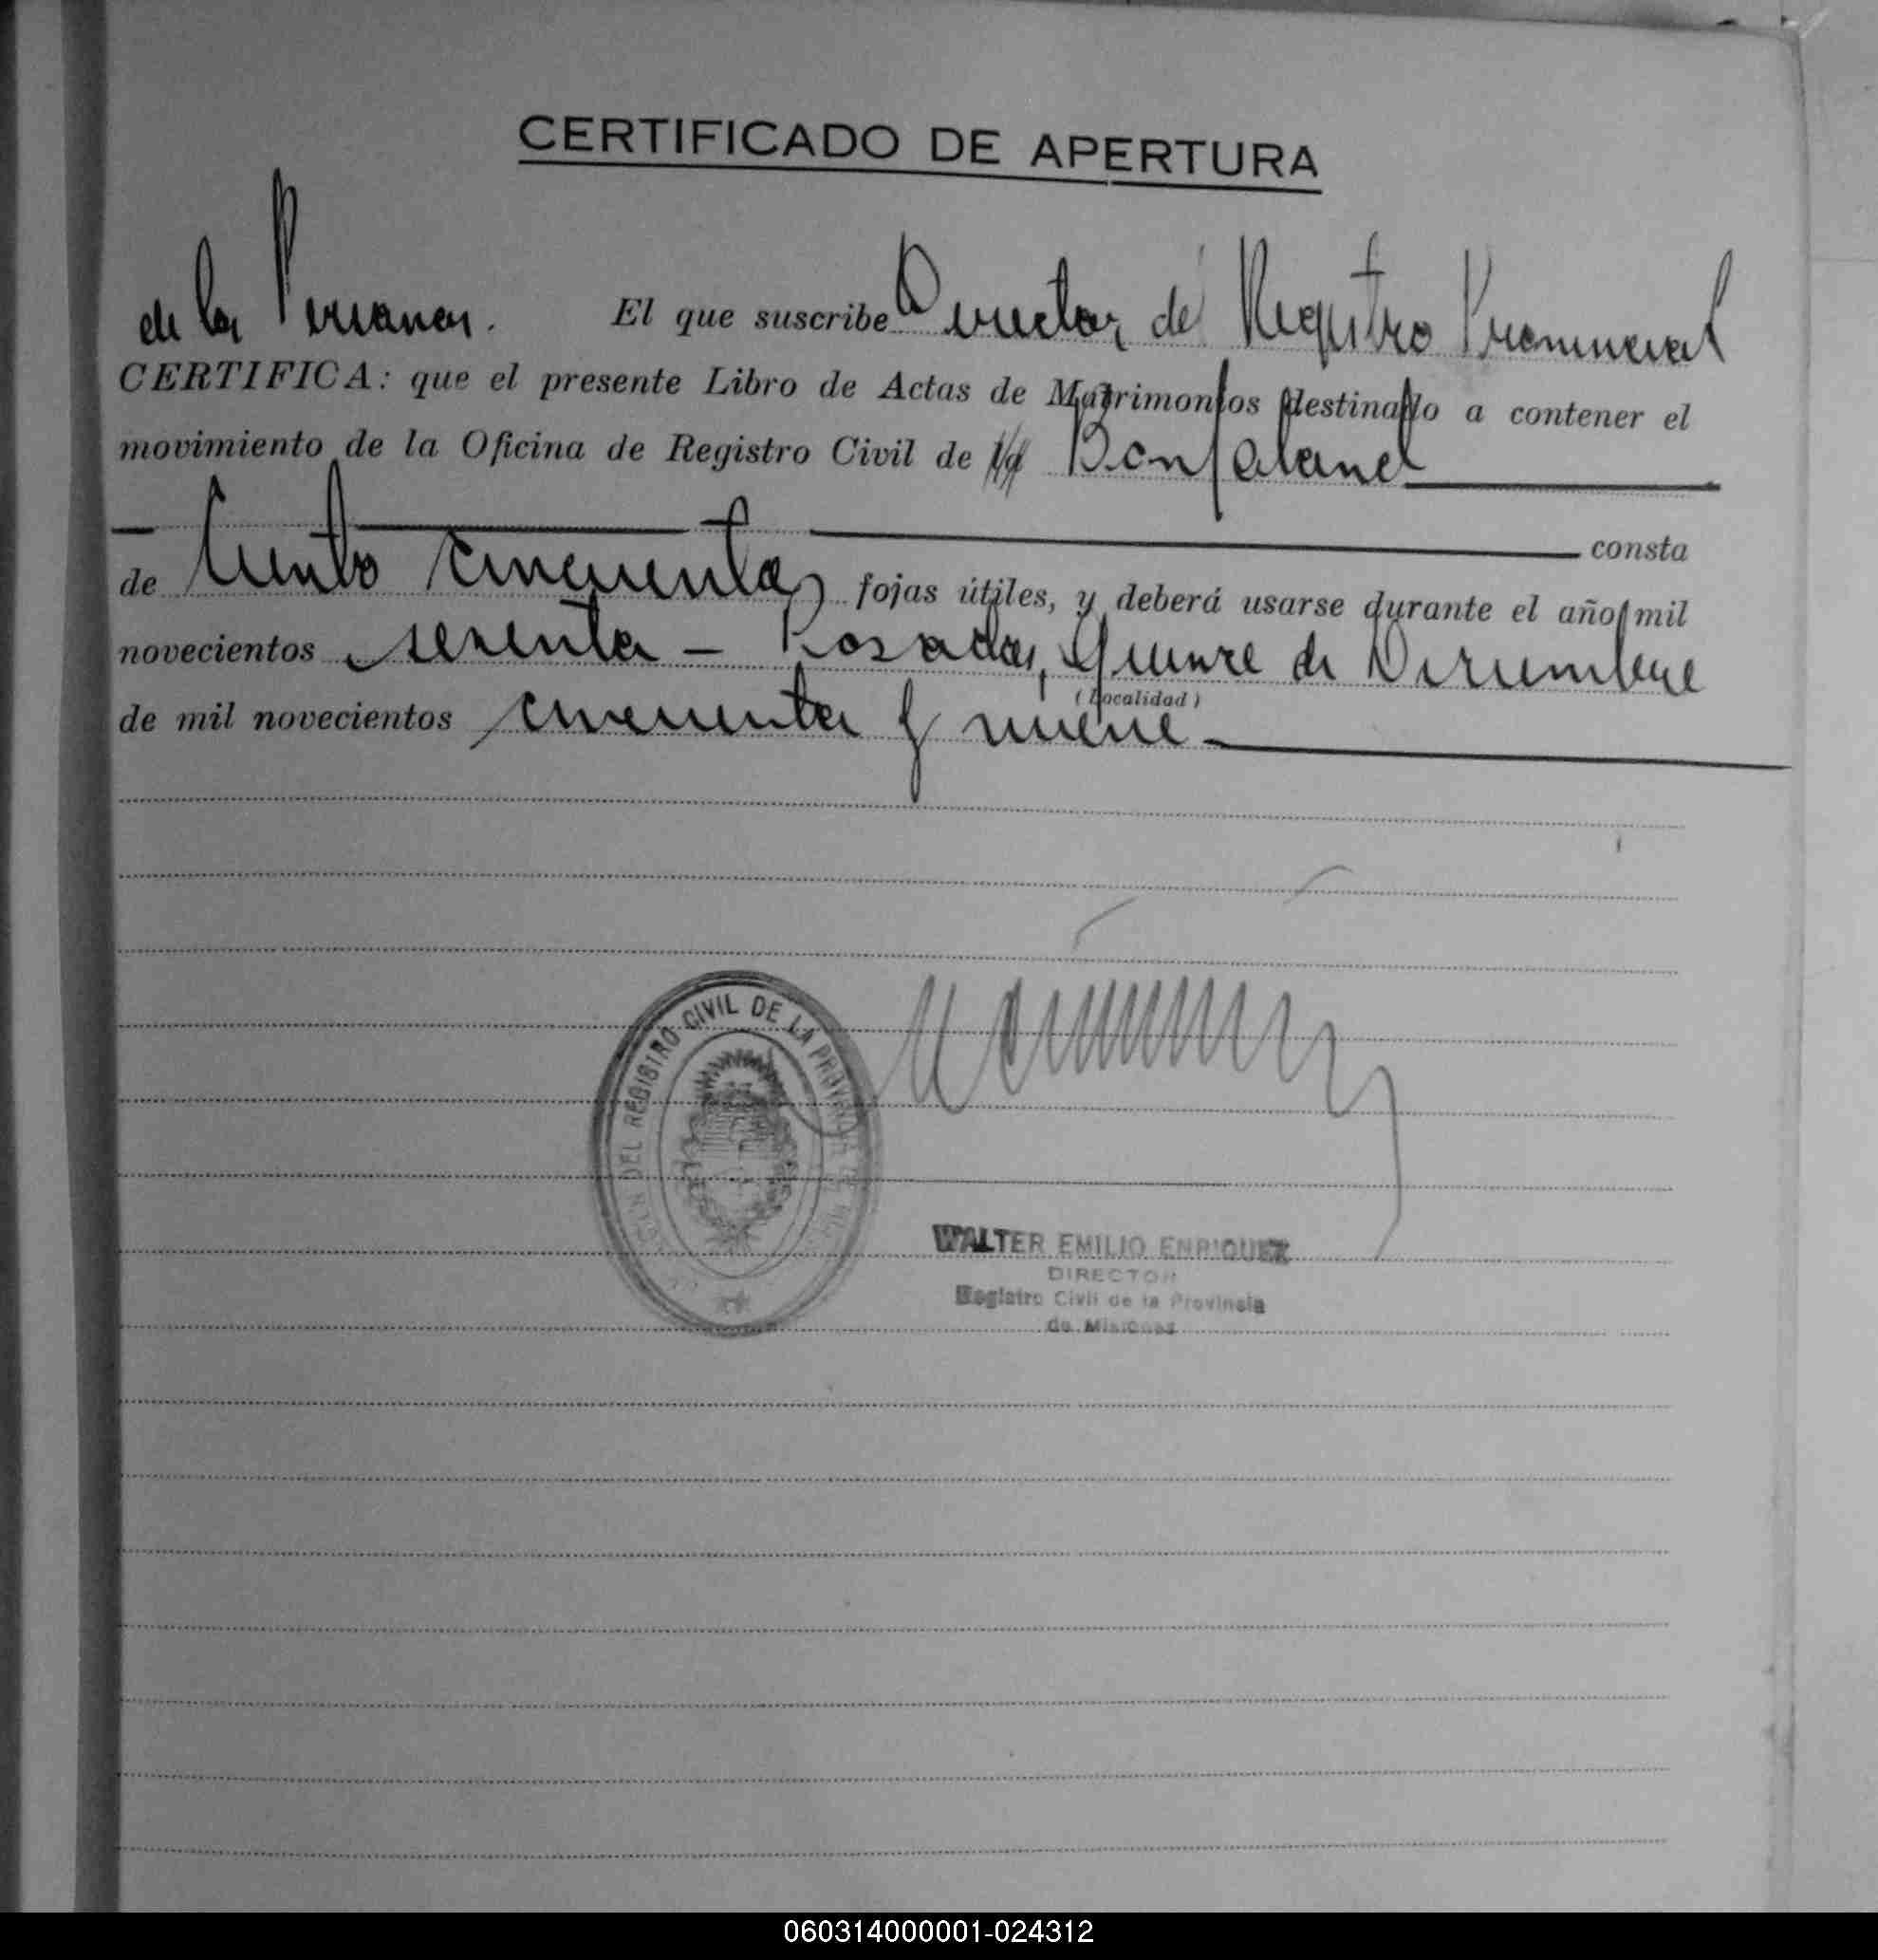 CERTIFICADO DE APERTURA
de las Personas. El que suscribe Director del Registro Provincial
CERTIFICA: que el presente Libro de Actas de Matrimonios destinado a contener el
movimiento de la Oficina de Registro Civil de la Bonpland
consta
de Ciento cincuenta fojas útiles, y deberá usarse durante el año mil
novecientos sesenta - Posadas, Quince de Diciembre
(Localidad)
de mil novecientos cincuenta y nueve
DEL REGISTRO CIVIL DE LA PROVINCIA DE
WALTER EMILIO ENRIQUEZ
DIRECTOR
Registro Civil de la Provincia
de Misiones
060314000001-024312